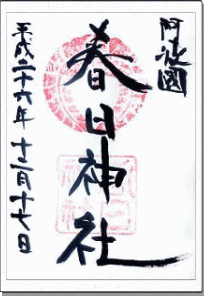 阿波國
春日神社
平成二十六年十二月十七日